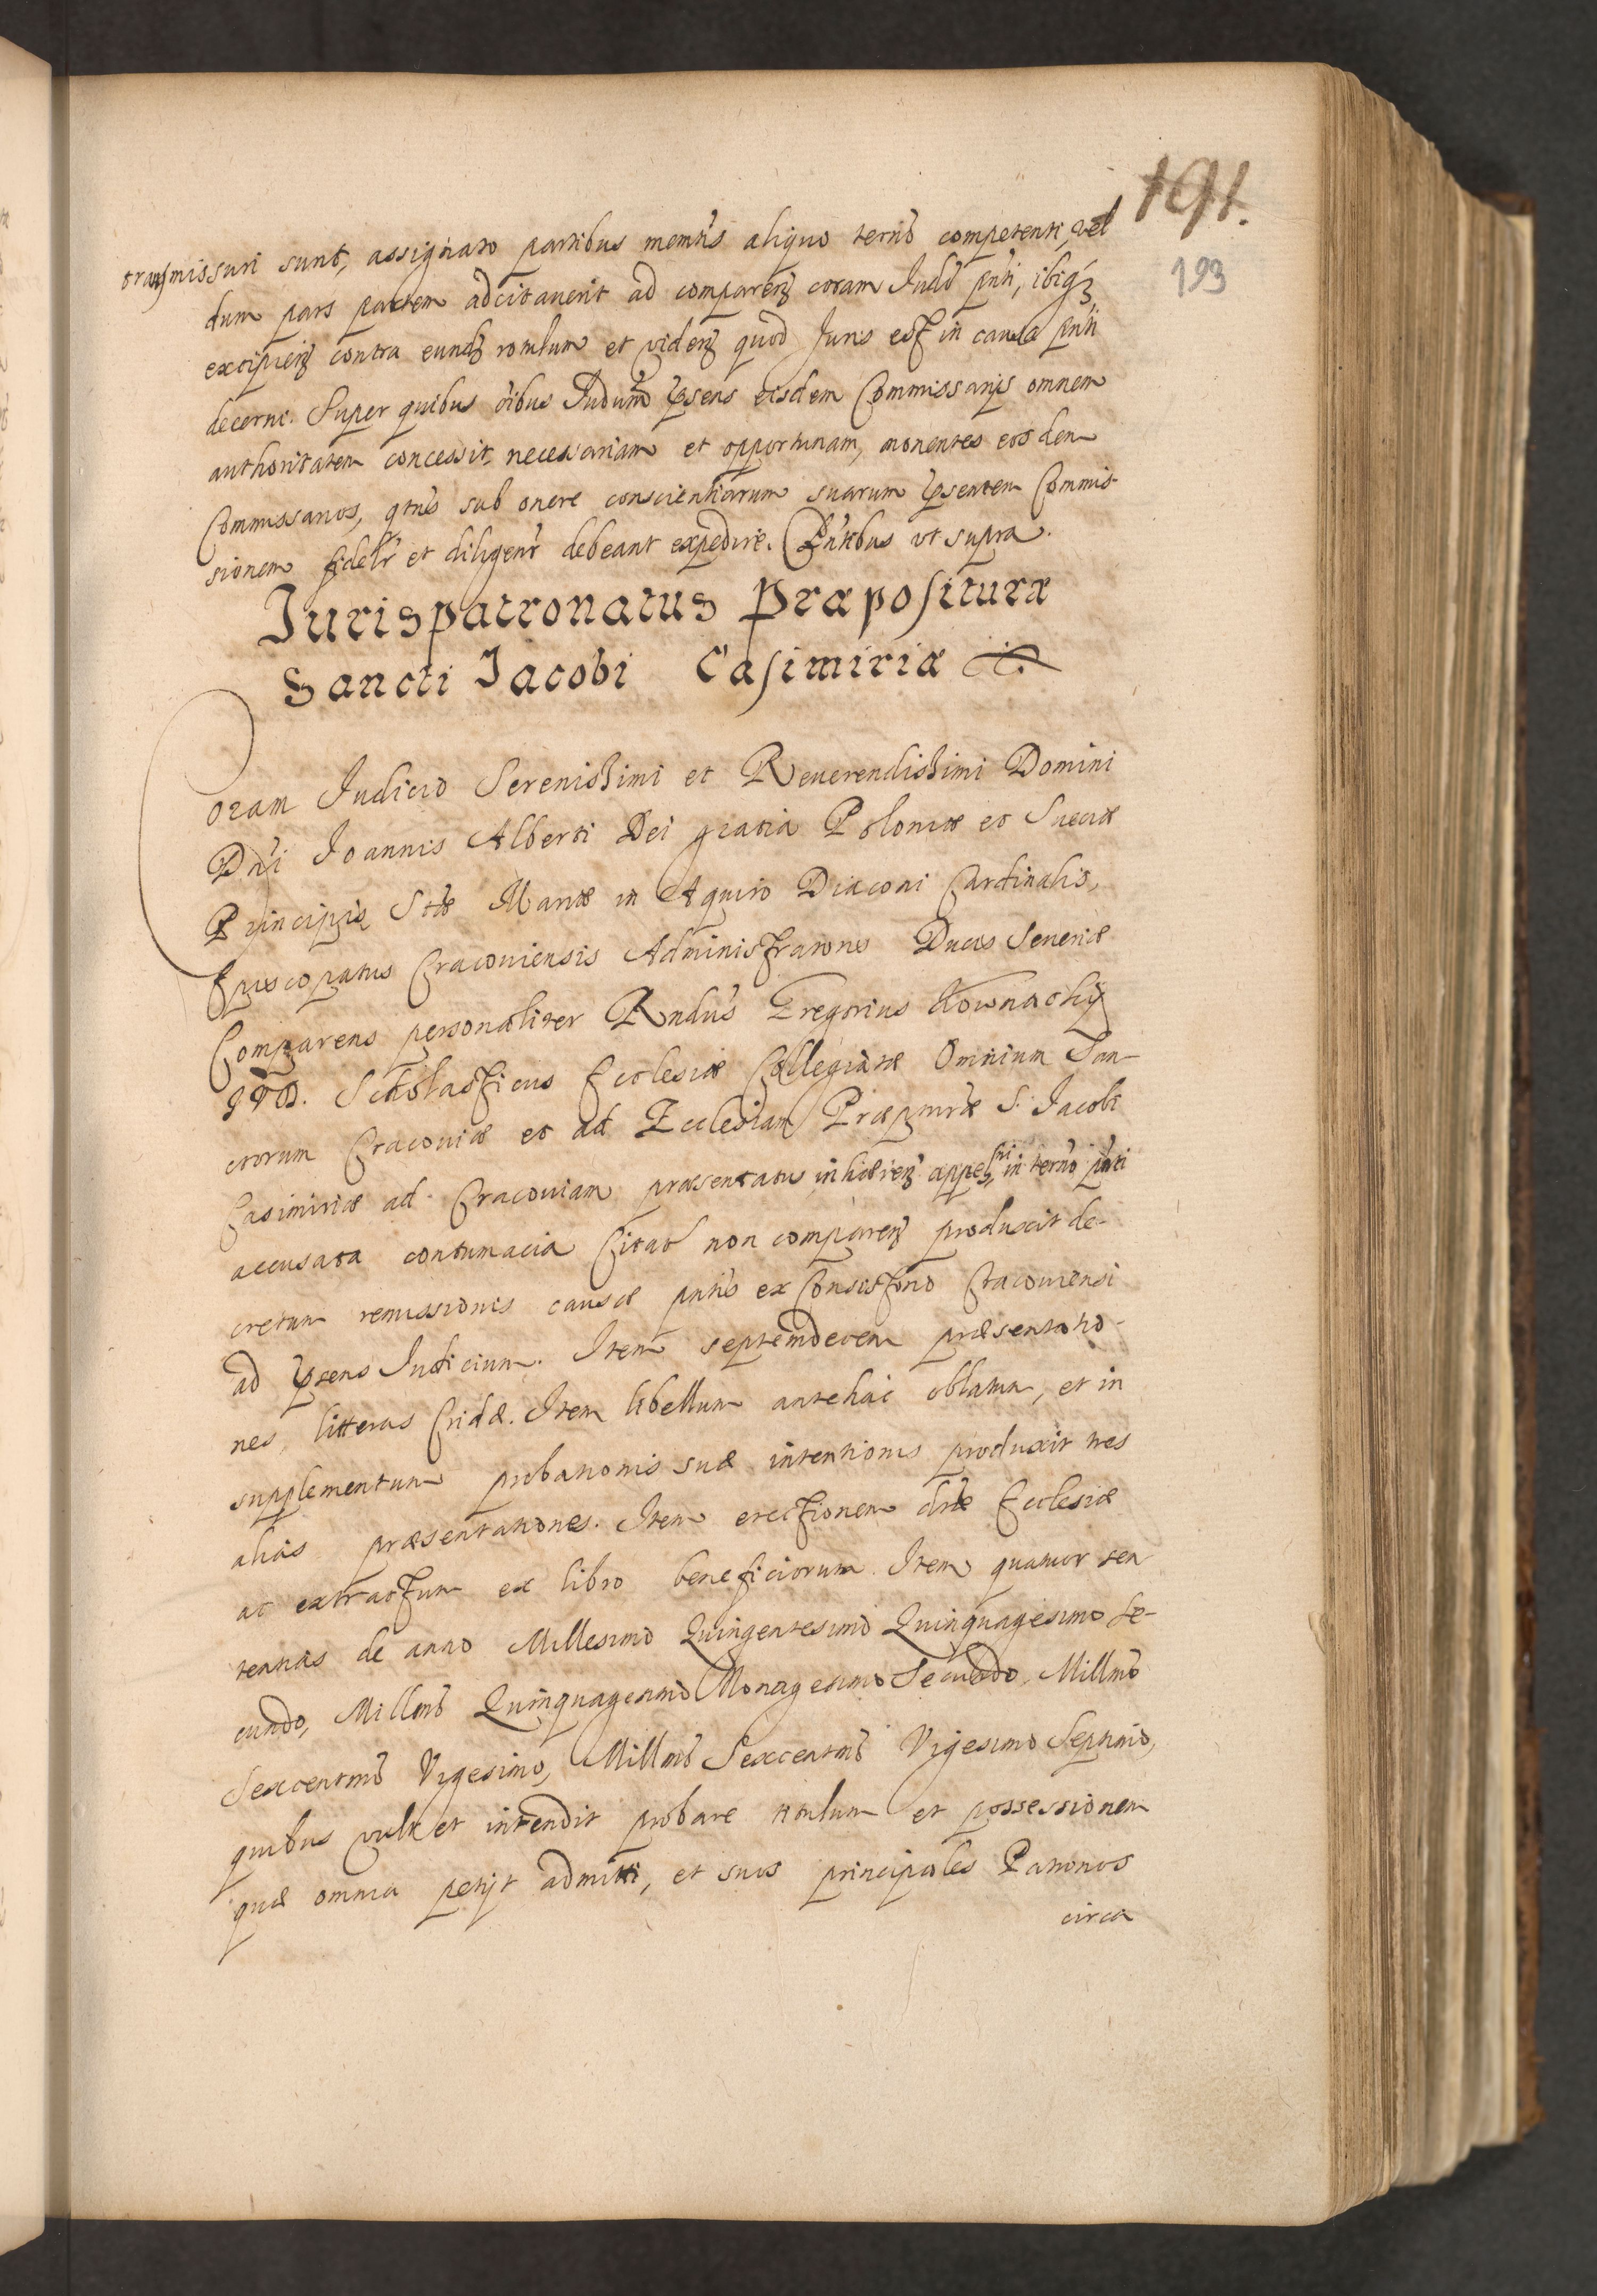 191.
193
transmissuri sunt, assignato partibus memtis aliquo termo competenti, vel
dum pars partem adcitaverit ad comparenz coram Iudo pnti, ibiqz
excipienz contra eundz rotulum et videnz quod Juris est in causa pnti
decerni. Super quibus oibus Iudum psens eisdem Commissarijs omnem
authoritatem concessit necessariam et opportunam, monentes eosdem
Commissarios, qtnus sub onere conscientiarum suarum psentem Commis-
sionem fidelr et diligentr debeant expedire. Pntibus ut supra.
Jurispatronatus Præpositurae
Sancti Jacobi Casimiriæ
Coram Judicio Serenissimi et Reverendissimi Domini
Dni Joannis Alberti Dei gratia Poloniæ et Sueciæ
Principis Stæ Mariæ in Aquiro Diaconi Cardinalis,
Episcopatus Cracoviensis Administratoris Ducis Severiæ
Comparens personaliter Rndus Gregorius Kownachij
JVD. Scholasticus Ecclesiæ Collegiatæ Omnium San-
ctorum Cracoviæ et ad Ecclesiam Præpturæ S. Jacobi
Casimiriæ ad Cracoviam præsentatus inhærenz in termo pnti
accusata contumacia Citat non comparenz produxit de-
cretum remissionis causæ pntis ex Consistorio Cracoviensi
ad psens Judicium. Item septemdecem præsentatio-
nes, litteras Cridæ. Item libellum antehac oblatum, et in
supplementum probationis suæ intentionis produxit tres
alias præsentationes. Item erectionem dictæ Ecclesiæ
ac extractum ex libro beneficiorum. Item quatuor sen
tentias de anno Millesimo Quingentesimo Quinquagesimo Se-
cundo, Millmo Quinquagesimo Nonagesimo Secundo, Millmo
Sexcentmo Vigesimo, Millmo Sexcentmo Vigesimo Septimo,
quibus vult et intendit probare titulum et possessionem
quæ omnia petijt admitti, et suos principales Patronos
circa